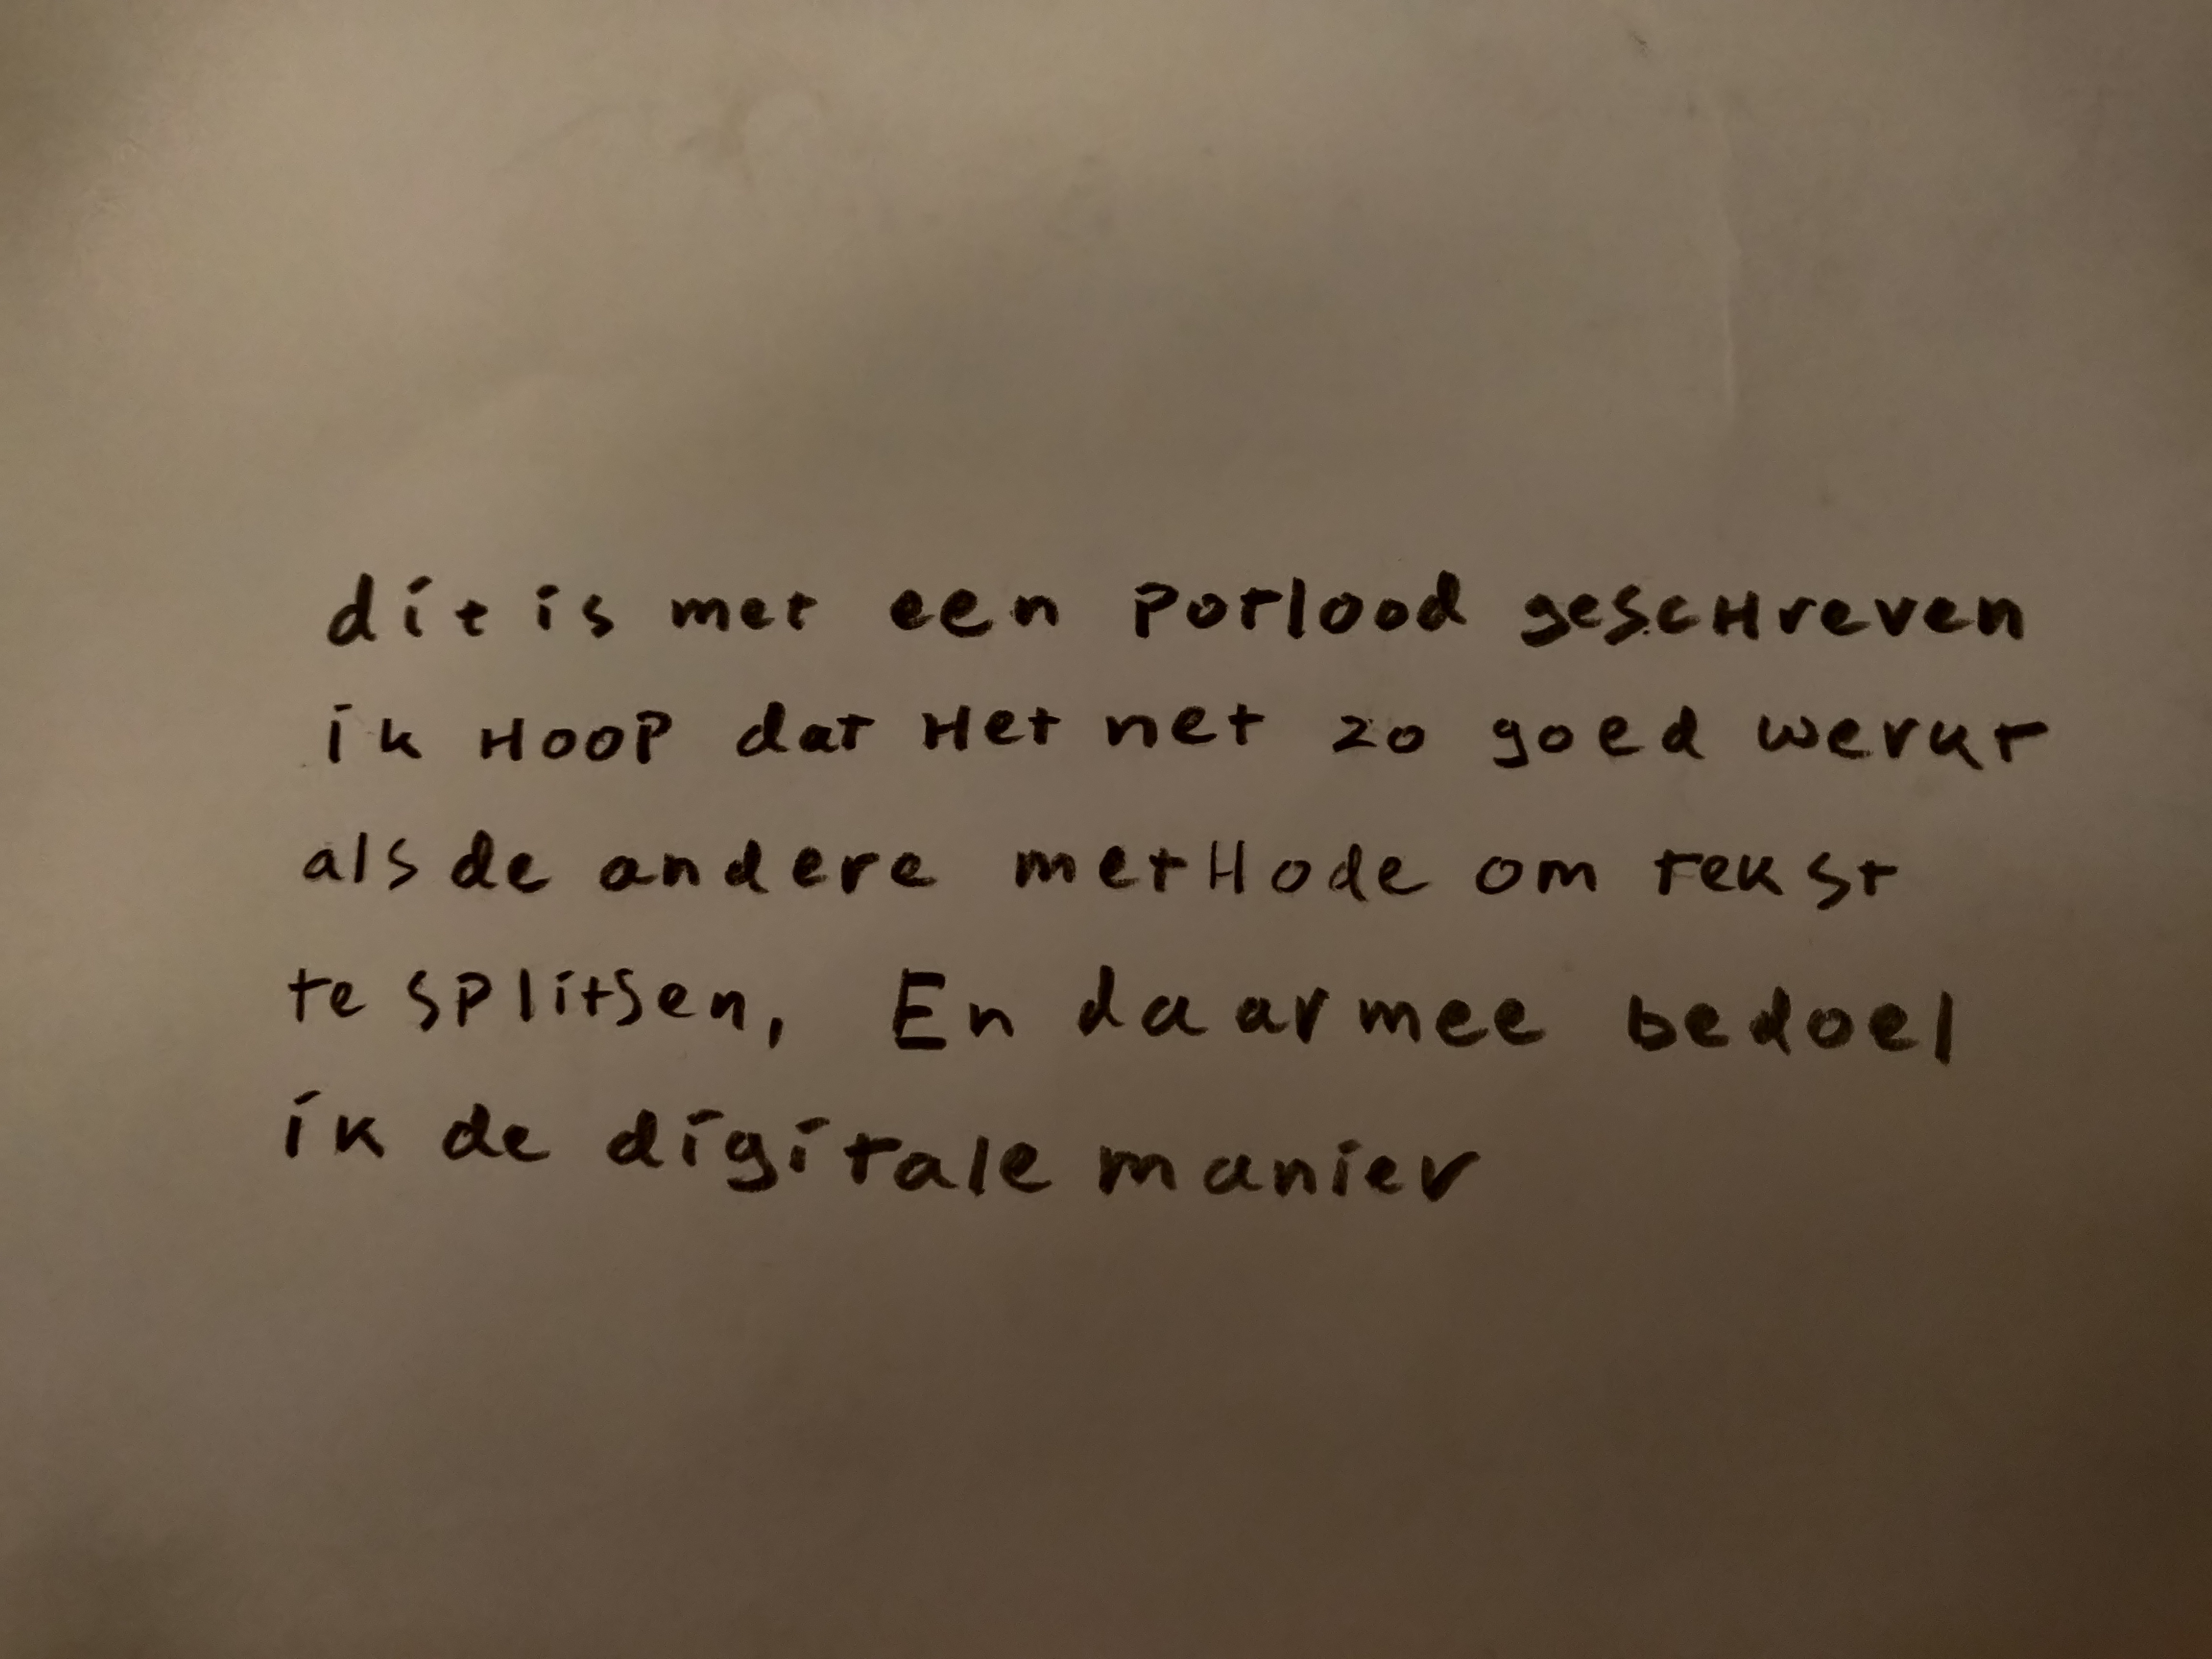 dit is met een potlood gescHreven
ik Hoop dat Het net zo goed werkt
als de andere metHode om tekst
te splitsen, En daarmee bedoel
ik de digitale manier